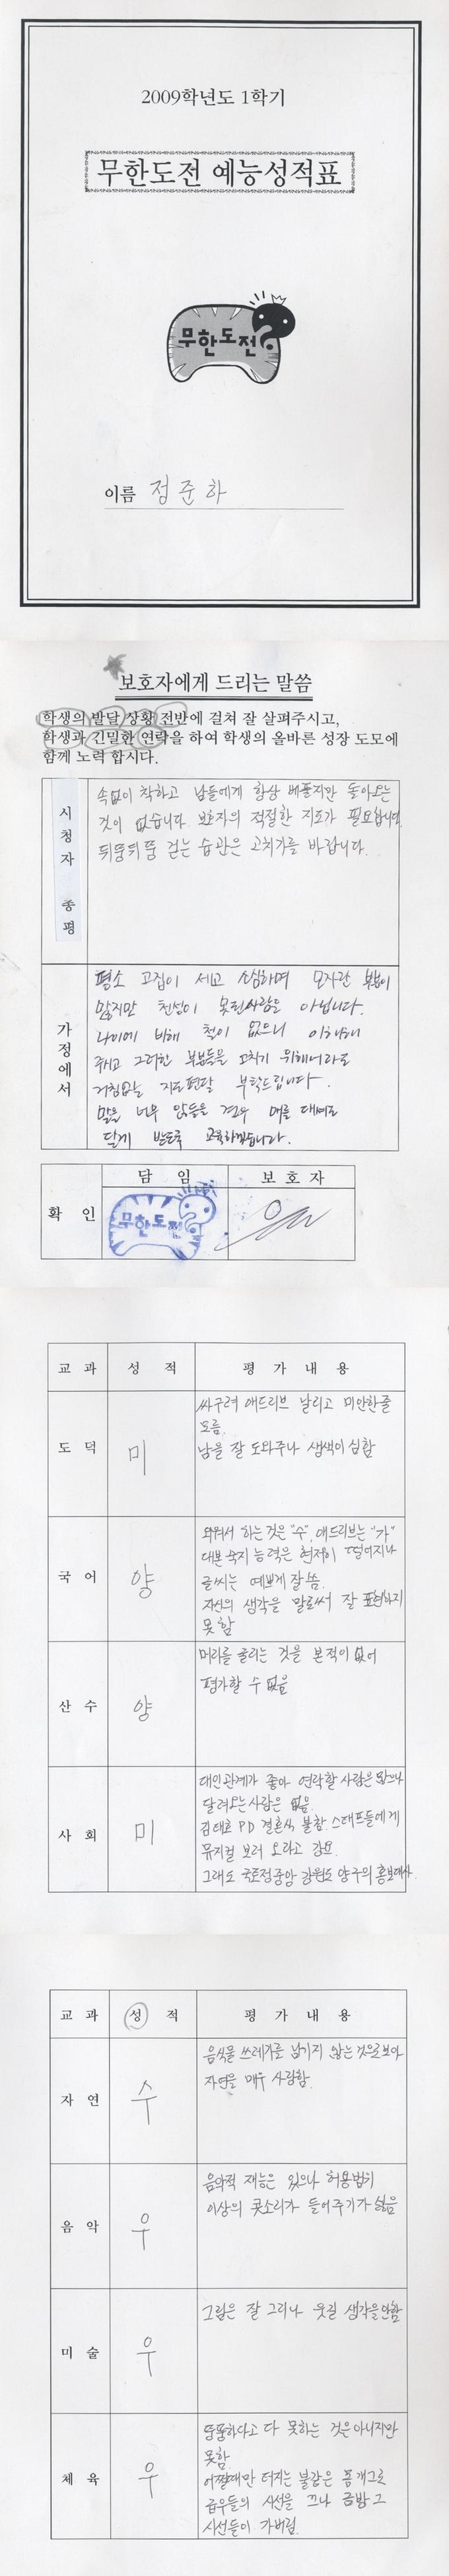 2009학년도 1학기
무한도전 예능성적표
무한도전
이름 정준하
보호자에게 드리는 말씀
학생의 발달 상황 전반에 걸쳐 잘 살펴주시고,
학생과 긴밀한 연락을 하여 학생의 올바른 성장 도모에
함께 노력 합시다.
시청자 총평
속없이 착하고 남들에게 항상 베풀지만 돌아오는
것이 없습니다. 보호자의 적절한 지도가 필요합니다.
뒤뚱뒤뚱 걷는 습관은 고치기를 바랍니다.
가정에서
평소 고집이 세고 소심하며 모자란 부분이
많지만 천성이 못된사람은 아닙니다.
나이에 비해 철이 없으니 이해해
주시고 그러한 부분들을 고치기 위해서라도
거침없는 지도편달 부탁드립니다.
말을 너무 안들을 경우 매를 대셔도
달게 받도록 교육하겠습니다.
확 인
담 임
보 호 자
무한도전
교 과 성 적 평 가 내 용
도 덕
미
싸구려 애드리브 날리고 미안한줄
모름.
남을 잘 도와주나 생색이 심함
국 어
양
외워서 하는것은 "수", 애드리브는 "가"
대본 숙지 능력은 현저히 떨어지나
글씨는 예쁘게 잘 씀.
자신의 생각을 말로써 잘 표현하지
못함
산 수
양
머리를 굴리는 것을 본적이 없어
평가할 수 없음
사 회
미
대인관계가 좋아 연락할 사람은 많으나
달려오는 사람은 없음.
김태호 PD 결혼식 불참. 스태프들에게
뮤지컬 보러 오라고 강요.
그래도 국토정중앙 강원도 양구의 홍보대사.
교 과 성 적 평 가 내 용
자 연
수
음식물 쓰레기를 남기지 않는 것으로 보아
자연을 매우 사랑함.
음 악
우
음악적 재능은 있으나 허용범위
이상의 콧소리가 들어주기가 싫음
미 술
우
그림은 잘 그리나 웃길 생각을 안함
체 육
우
뚱뚱하다고 다 못하는 것은 아니지만
못함
어쩔때만 터지는 불같은 몸개그로
급우들의 시선을 끄나 금방 그
시선들이 가버림.